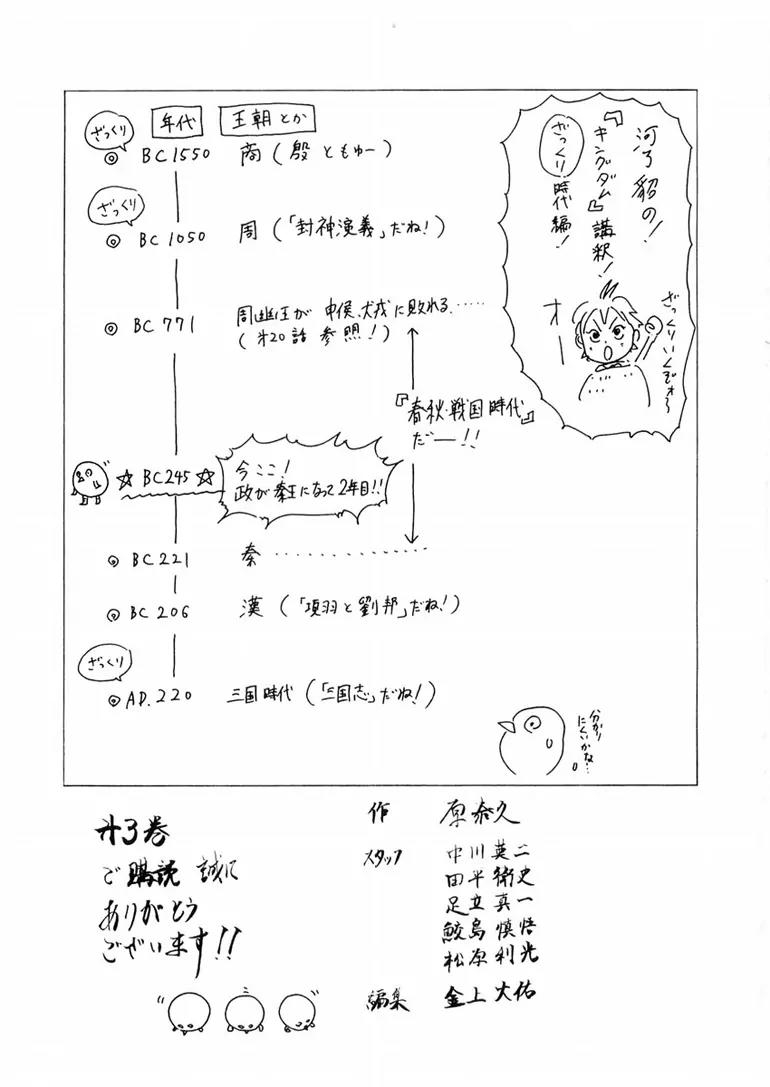 河了貂の!
『キングダム』講釈!
ざっくり時代編!
ざっくりいくぞォ〜
オー
年代 王朝とか
ざっくり
◎ BC1550 商(殷ともゆー)
ざっくり
◎ BC1050 周(「封神演義」だね!)
◎ BC771 周幽王が申侯、犬戎に敗れる……
(才20話参照!)
『春秋・戦国時代』
だー!!
☆BC245☆
今ここ!
政が秦王になって2年目!!
◎ BC221 秦……………
◎ BC206 漢(「項羽と劉邦」だね!)
ざっくり
◎ AD.220 三国時代(「三国志」だね!)
分かり
にくいかな…
才3巻
ご購読誠に
ありがとう
ございます!!
作 原泰久
スタッフ 中川英二
田平衛史
足立真一
鮫島慎悟
松原利光
編集 金上大佑